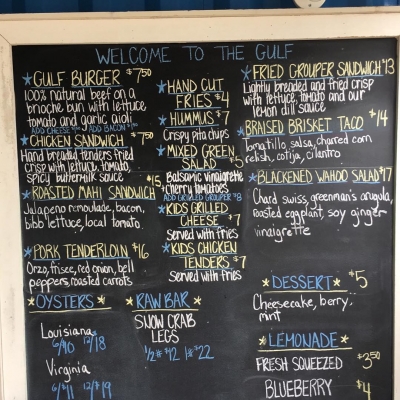 WELCOME TO THE GULF
GULF BURGER $7.50
100% natural beef on a
brioche bun with lettuce
tomato and garlic aioli
ADD CHEESE ADD BACON
CHICKEN SANDWICH $7.50
Hand breaded tenders fried
crisp with lettuce, tomato,
spicy buttermilk sauce
ROASTED MAHI SANDWICH $15
Jalapeno remoulade, bacon,
bibb lettuce, local tomato
PORK TENDERLOIN $16
Orzo, frisee, red onion, bell
peppers, roasted carrots
OYSTERS
Louisiana
6/$10 12/$18
Virginia
6/$11 12/$19
HAND CUT
FRIES $4
HUMMUS $7
Crispy pita chips
MIXED GREEN
SALAD $5
Balsamic vinaigrette
+ cherry tomatoes
ADD GRILLED GROUPER $8
KIDS GRILLED
CHEESE $7
served with fries
KIDS CHICKEN
TENDERS $7
Served with fries
RAW BAR
SNOW CRAB
LEGS
1/2# $12 1# $22
FRIED GROUPER SANDWICH $13
Lightly breaded and fried crisp
with lettuce, tomato and our
lemon dill sauce
BRAISED BRISKET TACO $14
Tomatillo salsa, charred corn
relish, cotija, cilantro
BLACKENED WAHOO SALAD $17
Chard swiss, greenman's arugula,
roasted eggplant, soy ginger
vinaigrette
DESSERT $5
Cheesecake, berry,
mint
LEMONADE
FRESH SQUEEZED $3.50
BLUEBERRY $4